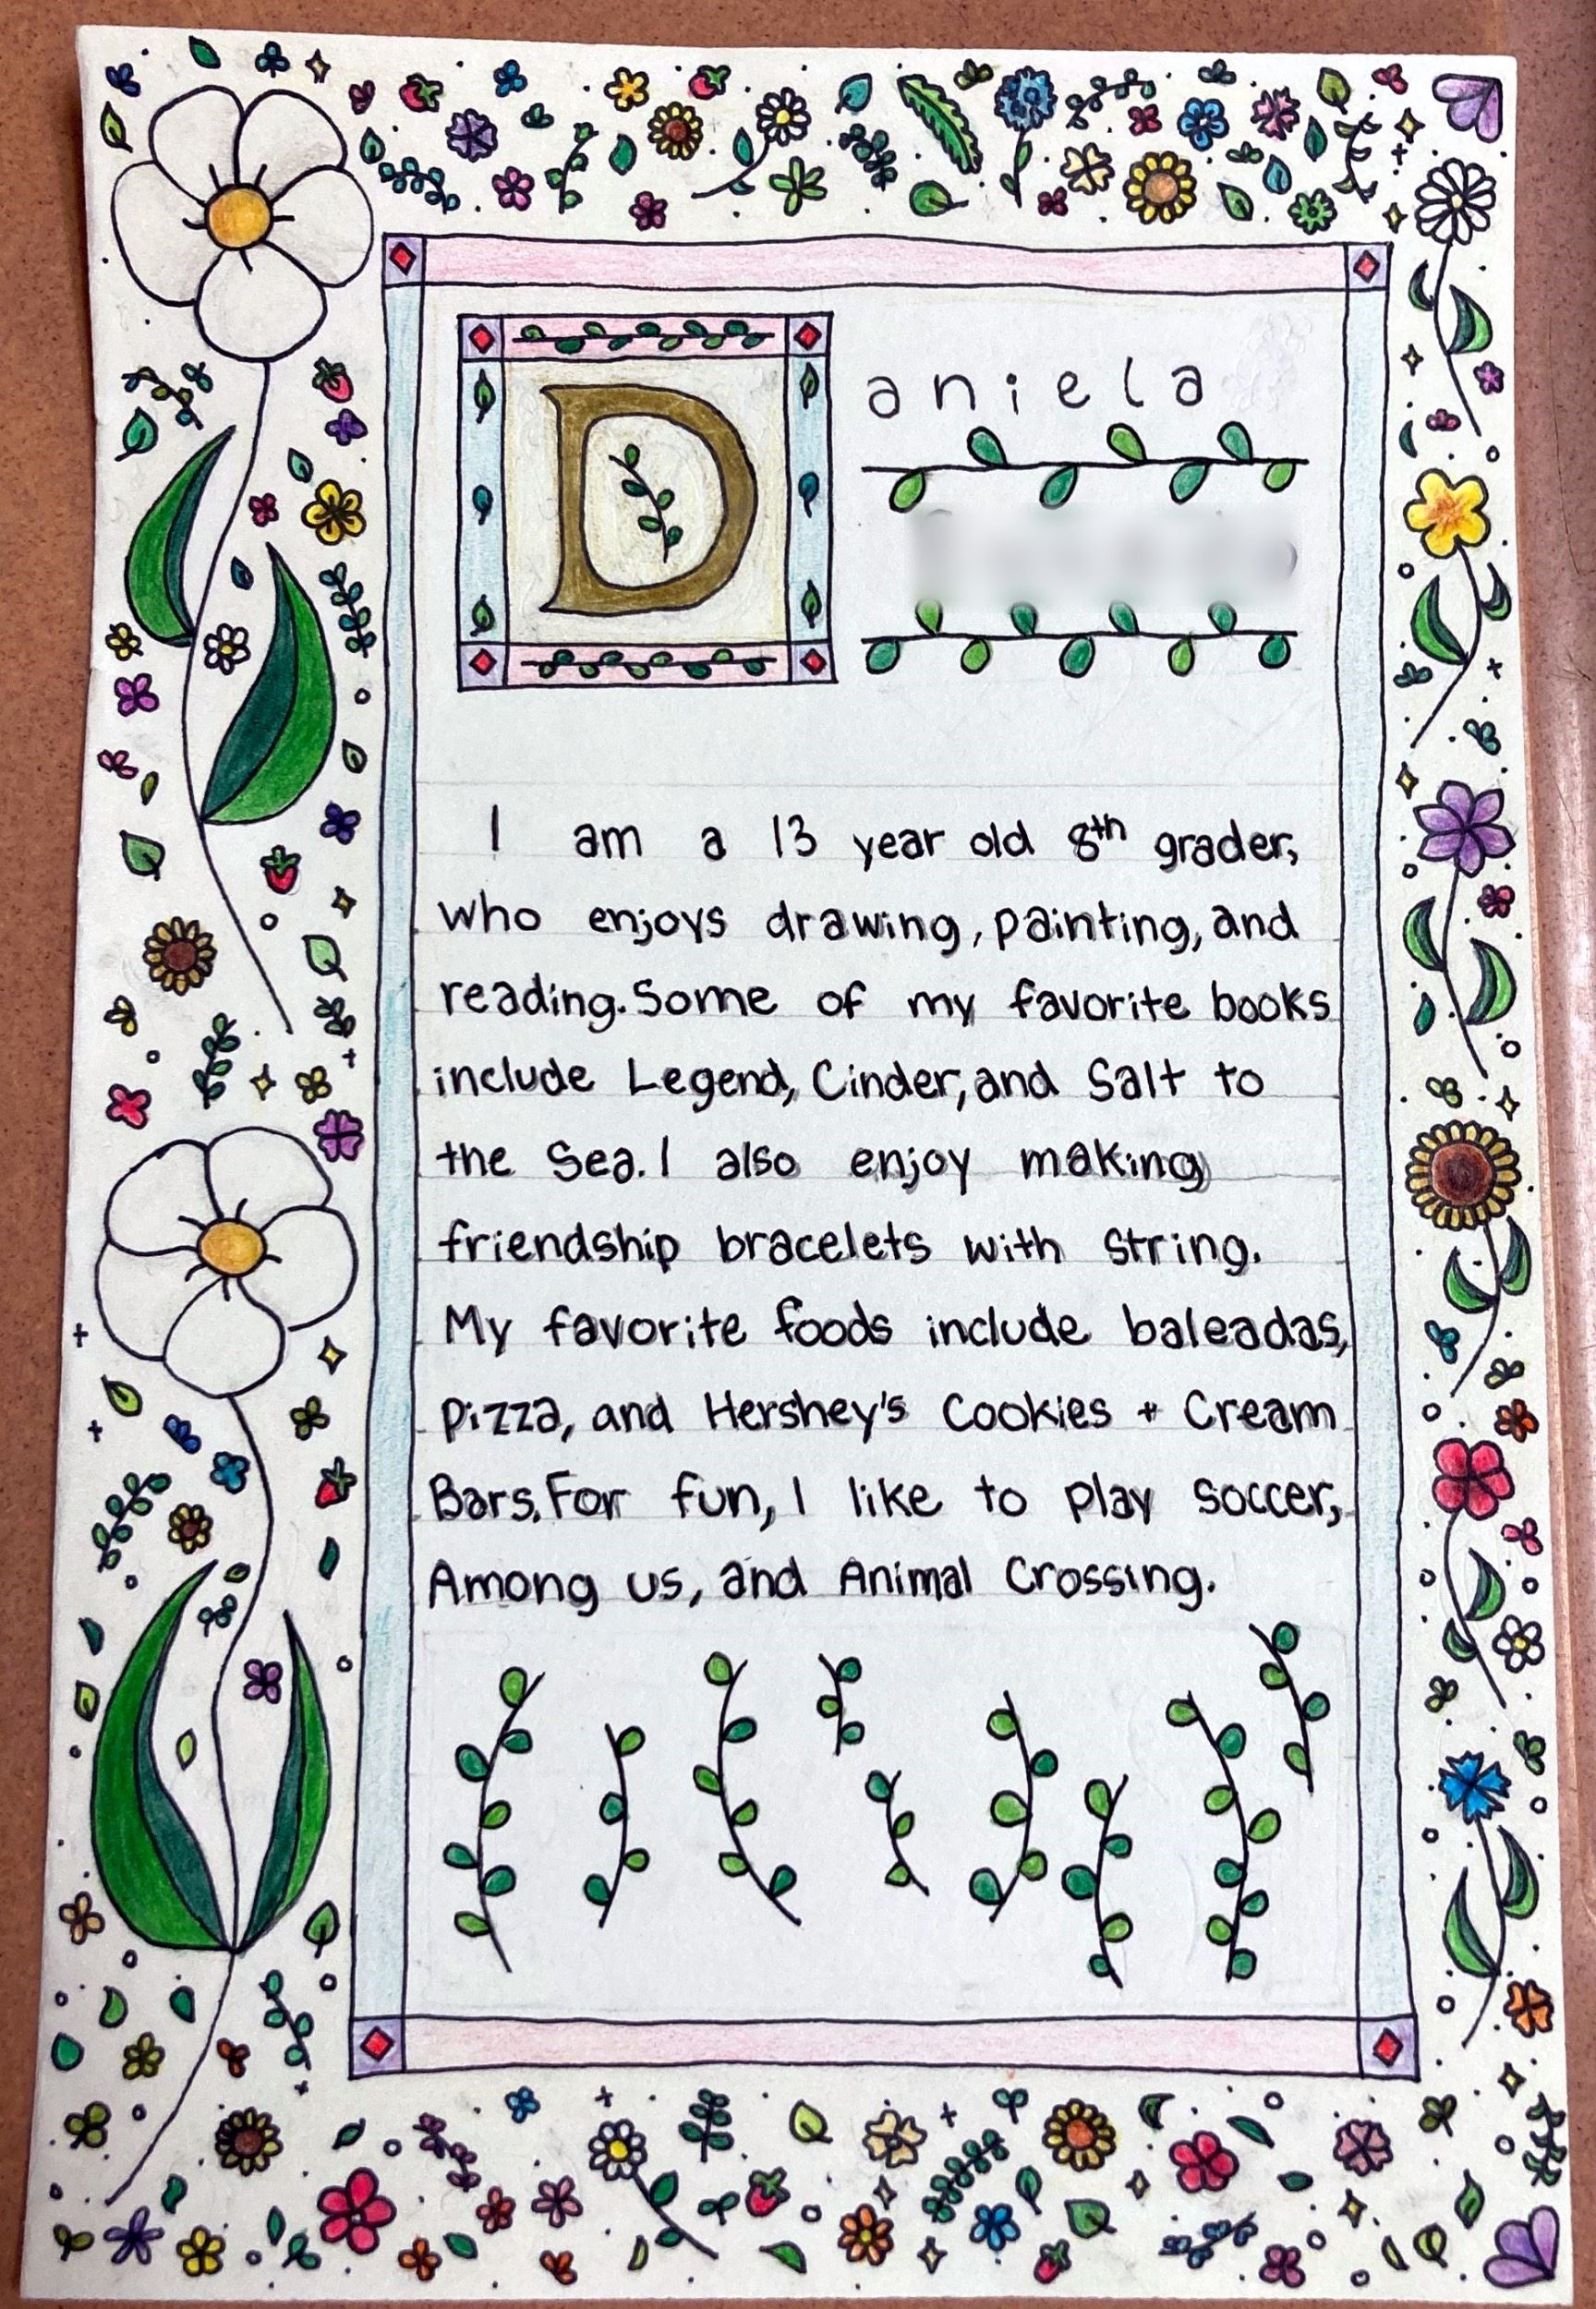 Daniela
I am a 13 year old 8th grader,
who enjoys drawing, painting, and
reading. Some of my favorite books
include Legend, Cinder, and Salt to
the Sea. I also enjoy making
friendship bracelets with string.
My favorite foods include baleadas,
pizza, and Hershey's Cookies + Cream
Bars. For fun, I like to play soccer,
Among us, and Animal Crossing.